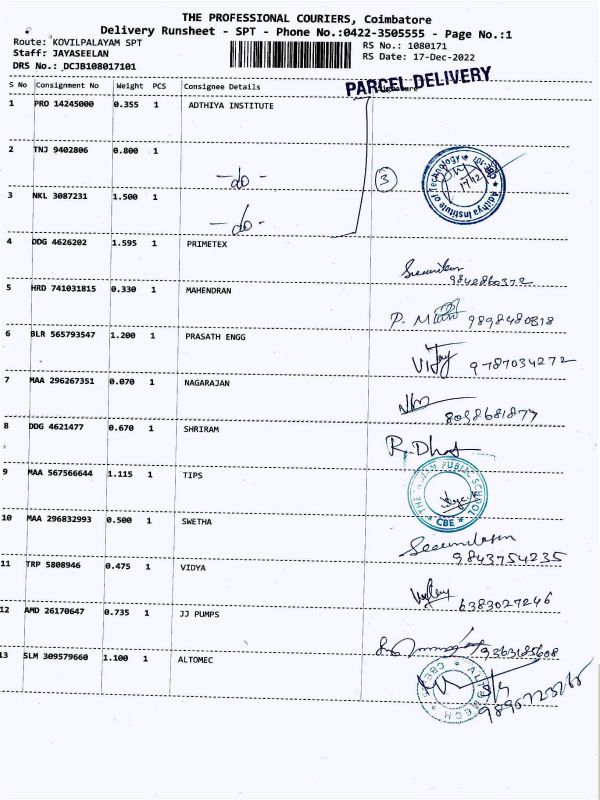 THE PROFESSIONAL COURIERS, Coimbatore
Delivery Runsheet - SPT - Phone No.:0422-3505555 - Page No.:1
Route: KOVILPALAYAM SPT RS No.: 1080171
Staff: JAYASEELAN RS Date: 17-Dec-2022
DRS No.: DCJB108017101
PARCEL DELIVERY
S No Consignment No Weight PCS Consignee Details Signature
1 PRO 14245000 0.355 1 ADTHIYA INSTITUTE
2 TNJ 9402806 0.800 1
-do-
3
Adithya Institute of Technology
17/12
3 NKL 3087231 1.500 1
-do-
4 DDG 4626202 1.595 1 PRIMETEX
9842860372
5 HRD 741031815 0.330 1 MAHENDRAN
P. 9898480818
6 BLR 565793547 1.200 1 PRASATH ENGG
Vijay 9787034272
7 MAA 296267351 0.070 1 NAGARAJAN
8098681877
8 DDG 4621477 0.670 1 SHRIRAM
R.Dha
9 MAA 567566644 1.115 1 TIPS
THE INDIAN PUBLIC SCHOOL
CBE
10 MAA 296832993 0.500 1 SWETHA
9843754235
11 TRP 5808946 0.475 1 VIDYA
6383027246
12 AMD 26170647 0.735 1 JJ PUMPS
9363185608
13 SLM 309579660 1.100 1 ALTOMEC